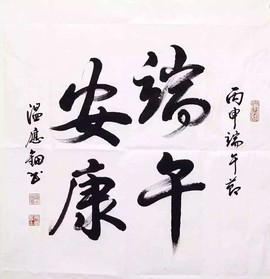 丙申端午节
端午
安康
温应钿书